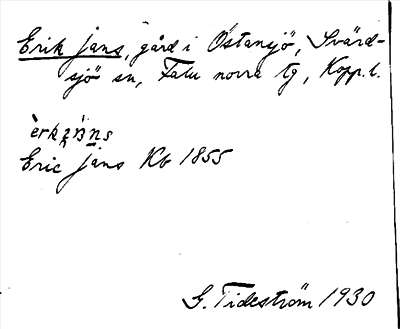 Erik jans, gård i Östansjö, Svärd-
sjö sn, Falu norra tg, Kopp. l.
Eric jans Kb 1855
G. Tideström 1930